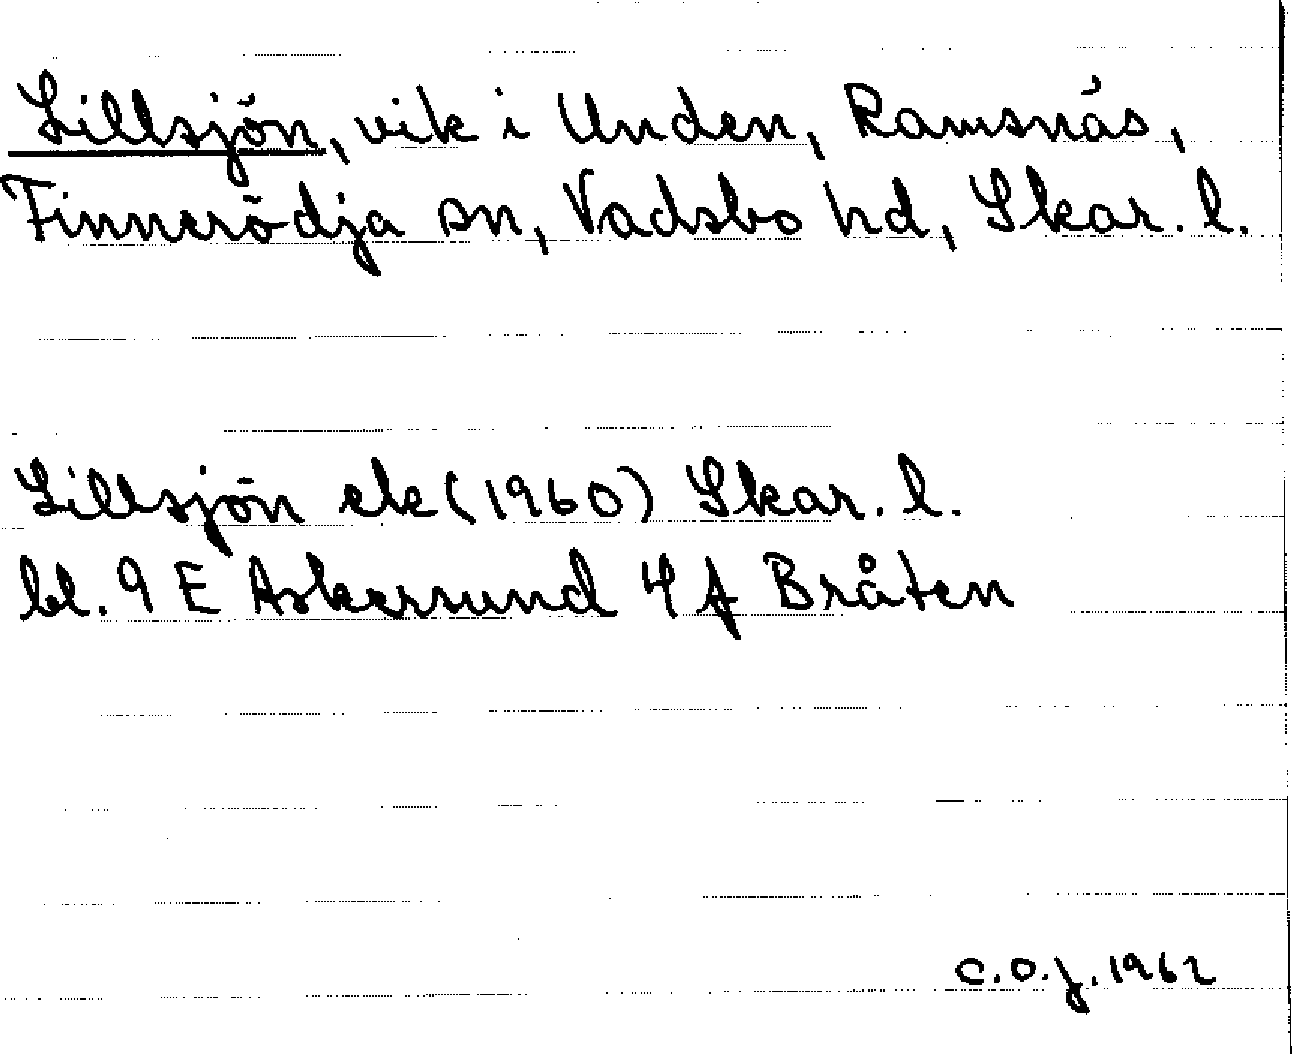 Lillsjön, vik i Unden, Ramsnäs,
Finnerödja sn, Vadsbo hd, Skar. l.
Lillsjön ek (1960) Skar. l.
bl. 9 E Askersund 4 f Bråten
C.O.J. 1962